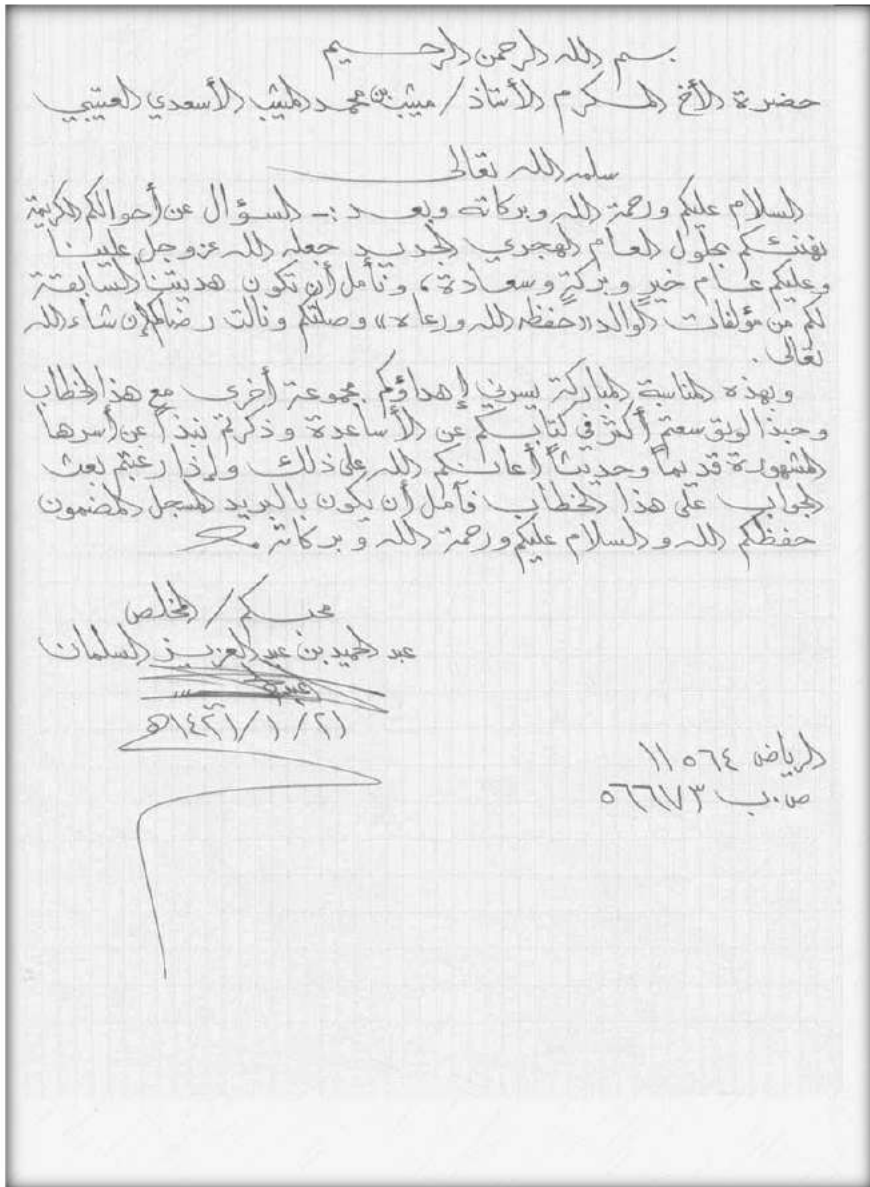 بسم الله الرحمن الرحيم
حضرة الأخ المكرم الأستاذ / ميثب بن محمد الميثب الأسعدي العتيبي
سلمه الله تعالى
السلام عليكم ورحمة الله وبركاته وبعد :- السؤال عن أحوالكم الكريمة
نهنئكم بحلول العام الهجري الجديد جعله الله عز وجل علينا
وعليكم عام خيرٍ وبركةٍ وسعادة، ونأمل أن تكون هديتنا السابقة
لكم من مؤلفات الوالد «حفظه الله ورعاه» وصلتكم ونالت رضاكم إن شاء الله
تعالى.
وبهذه المناسبة المباركة يسرني إهداؤكم مجموعة أخرى مع هذا الخطاب
وحبذا لو توسعتم أكثر في كتابكم عن الأساعدة وذكرتم نبذاً عن أسرها
المشهورة قديماً وحديثاً أعانكم الله على ذلك وإذا رغبتم بعث
الجواب على هذا الخطاب فآمل أن يكون بالبريد المسجل المضمون
حفظكم الله والسلام عليكم ورحمة الله وبركاته.
محبكم / المخلص
عبد الحميد بن عبد العزيز السلمان
١٤٢١/١/٢١هـ
الرياض ١١٥٦٤
ص.ب ٥٦٦٧٣